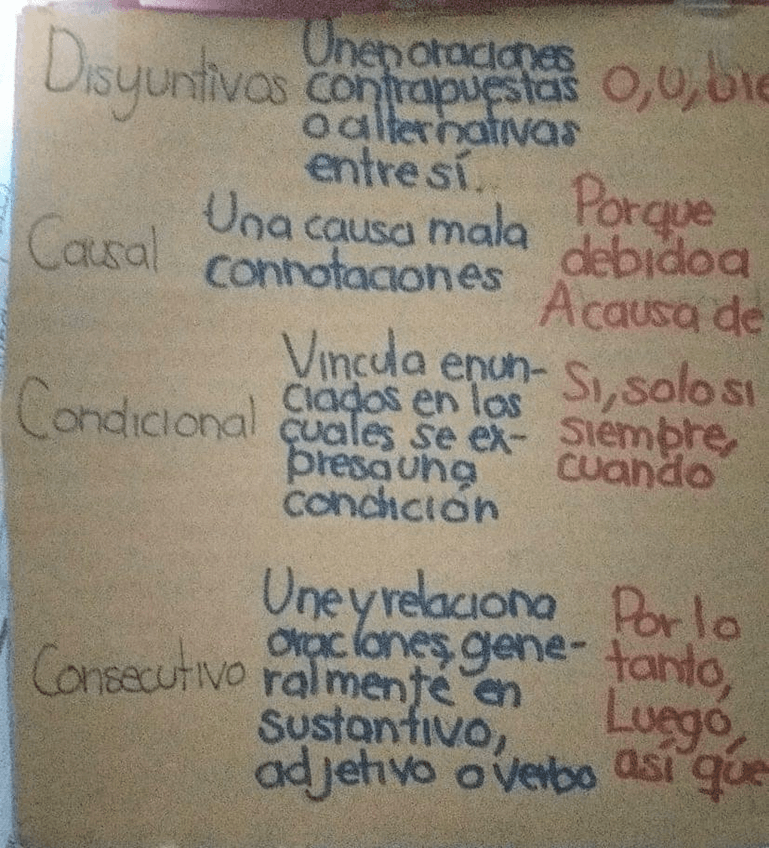 Disyuntivos Unen oraciones
contrapuestas O, U, bie
o alternativas
entre sí.
Causal Una causa mala Porque
connotaciones debido a
A causa de
Condicional Vincula enun- Si, solo si
ciados en los siempre,
cuales se ex- cuando
presa una
condición
Consecutivo Une y relaciona Por lo
oraciones, gene- tanto,
ralmente en Luego,
sustantivo, así que
adjetivo o verbo